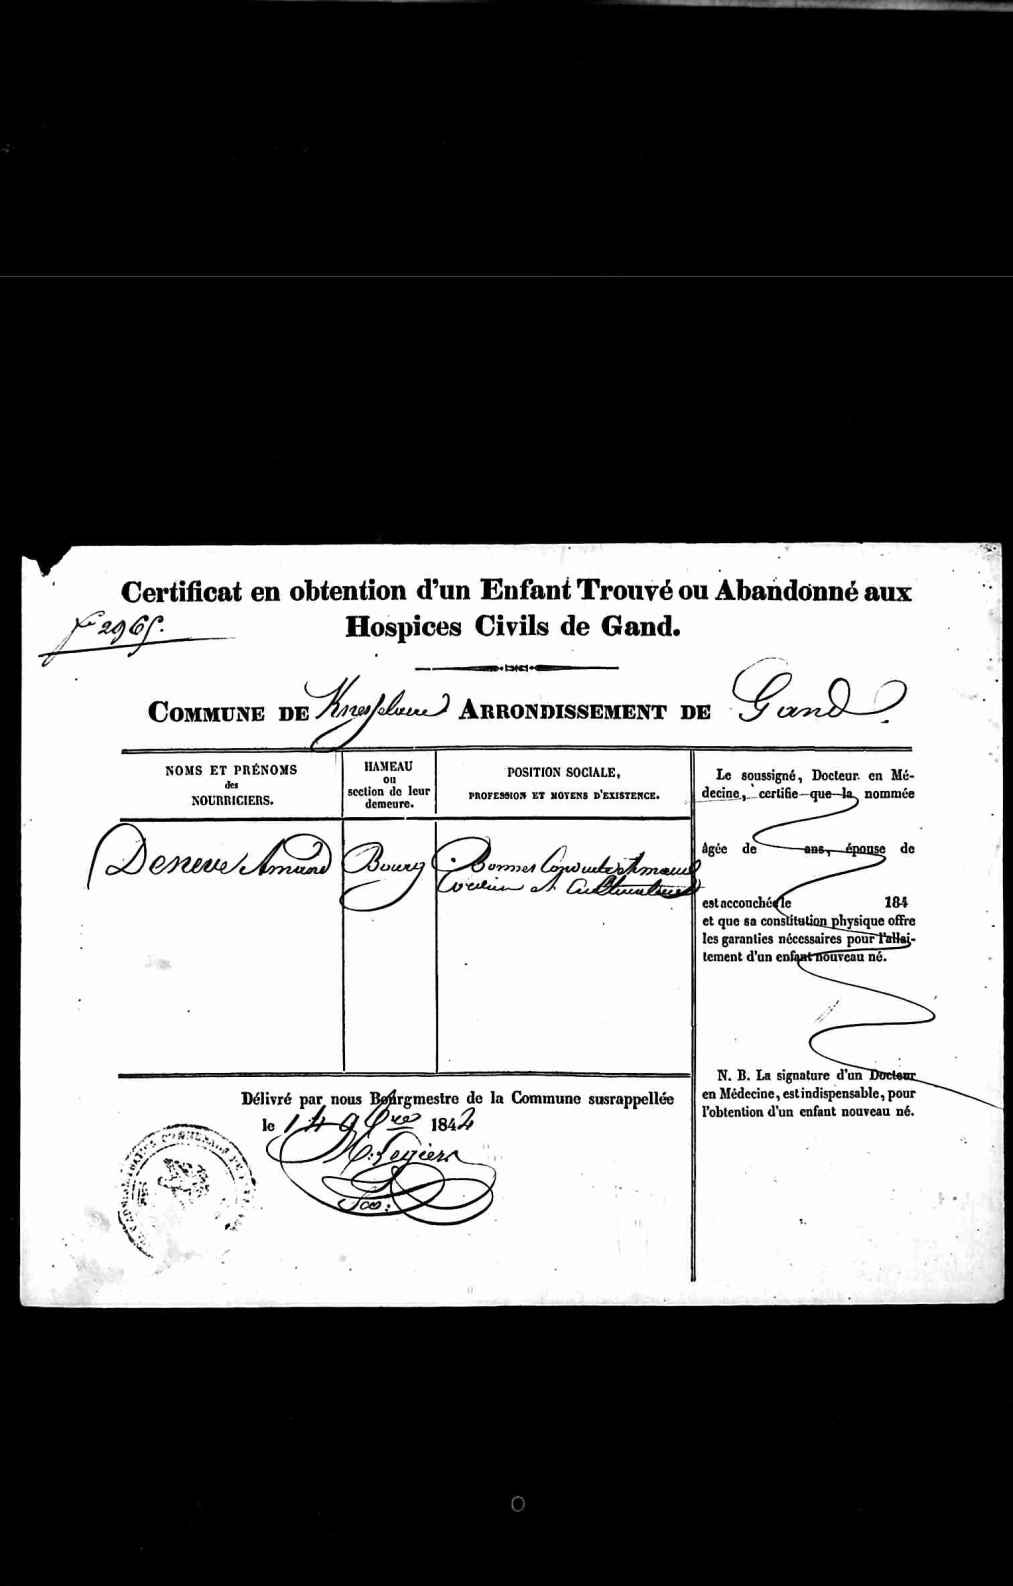 Certificat en obtention d'un Enfant Trouvé ou Abandonné aux
Hospices Civils de Gand.
COMMUNE DE Knesselaere ARRONDISSEMENT DE Gand.
NOMS ET PRÉNOMS
des
NOURRICIERS.
HAMEAU
ou
section de leur
demeure.
POSITION SOCIALE,
PROFESSION ET MOYENS D'EXISTENCE.
Deneve Amand
Bourg
Bonnes Conduite
et Cultivateur
Le soussigné, Docteur en Mé-
decine, certifie que la nommée
âgée de ans, épouse de
est accouchée le 184
et que sa constitution physique offre
les garanties nécessaires pour l'allai-
tement d'un enfant nouveau né.
N. B. La signature d'un Docteur
en Médecine, est indispensable, pour
l'obtention d'un enfant nouveau né.
Délivré par nous Bourgmestre de la Commune susrappellée
le 14 9bre 1842